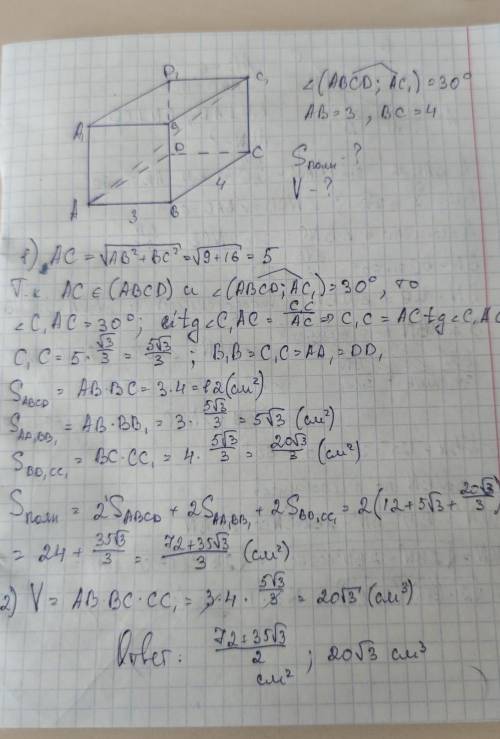 D₁
C₁
∠(ABCD; AC₁) = 30°
AB = 3, BC = 4
A₁
B₁
D
C
Sполн - ?
V - ?
4
A
3
B
1) AC = √(AB² + BC²) = √(9+16) = 5
Т.к AC ∈ (ABCD) и ∠(ABCD; AC₁) = 30°, то
∠C₁AC = 30°; tg∠C₁AC = C₁C/AC ⇒ C₁C = AC tg∠C₁AC
C₁C = 5 · √3/3 = 5√3/3; B₁B = C₁C = AA₁ = DD₁
S_ABCD = AB · BC = 3 · 4 = 12 (см²)
S_AA₁BB₁ = AB · BB₁ = 3 · 5√3/3 = 5√3 (см²)
S_BB₁CC₁ = BC · CC₁ = 4 · 5√3/3 = 20√3/3 (см²)
Sполн = 2S_ABCD + 2S_AA₁BB₁ + 2S_BB₁CC₁ = 2(12 + 5√3 + 20√3/3)
= 24 + 35√3/3 = (72 + 35√3)/3 (см²)
2) V = AB · BC · CC₁ = 3 · 4 · 5√3/3 = 20√3 (см³)
Ответ: (72 + 35√3)/2 см²; 20√3 см³